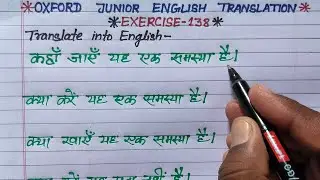 *OXFORD JUNIOR ENGLISH TRANSLATION*
*EXERCISE-138*
Translate into English-
कहाँ जाएँ यह एक समस्या है।
क्या करें यह एक समस्या है।
क्या खाएँ यह एक समस्या है।